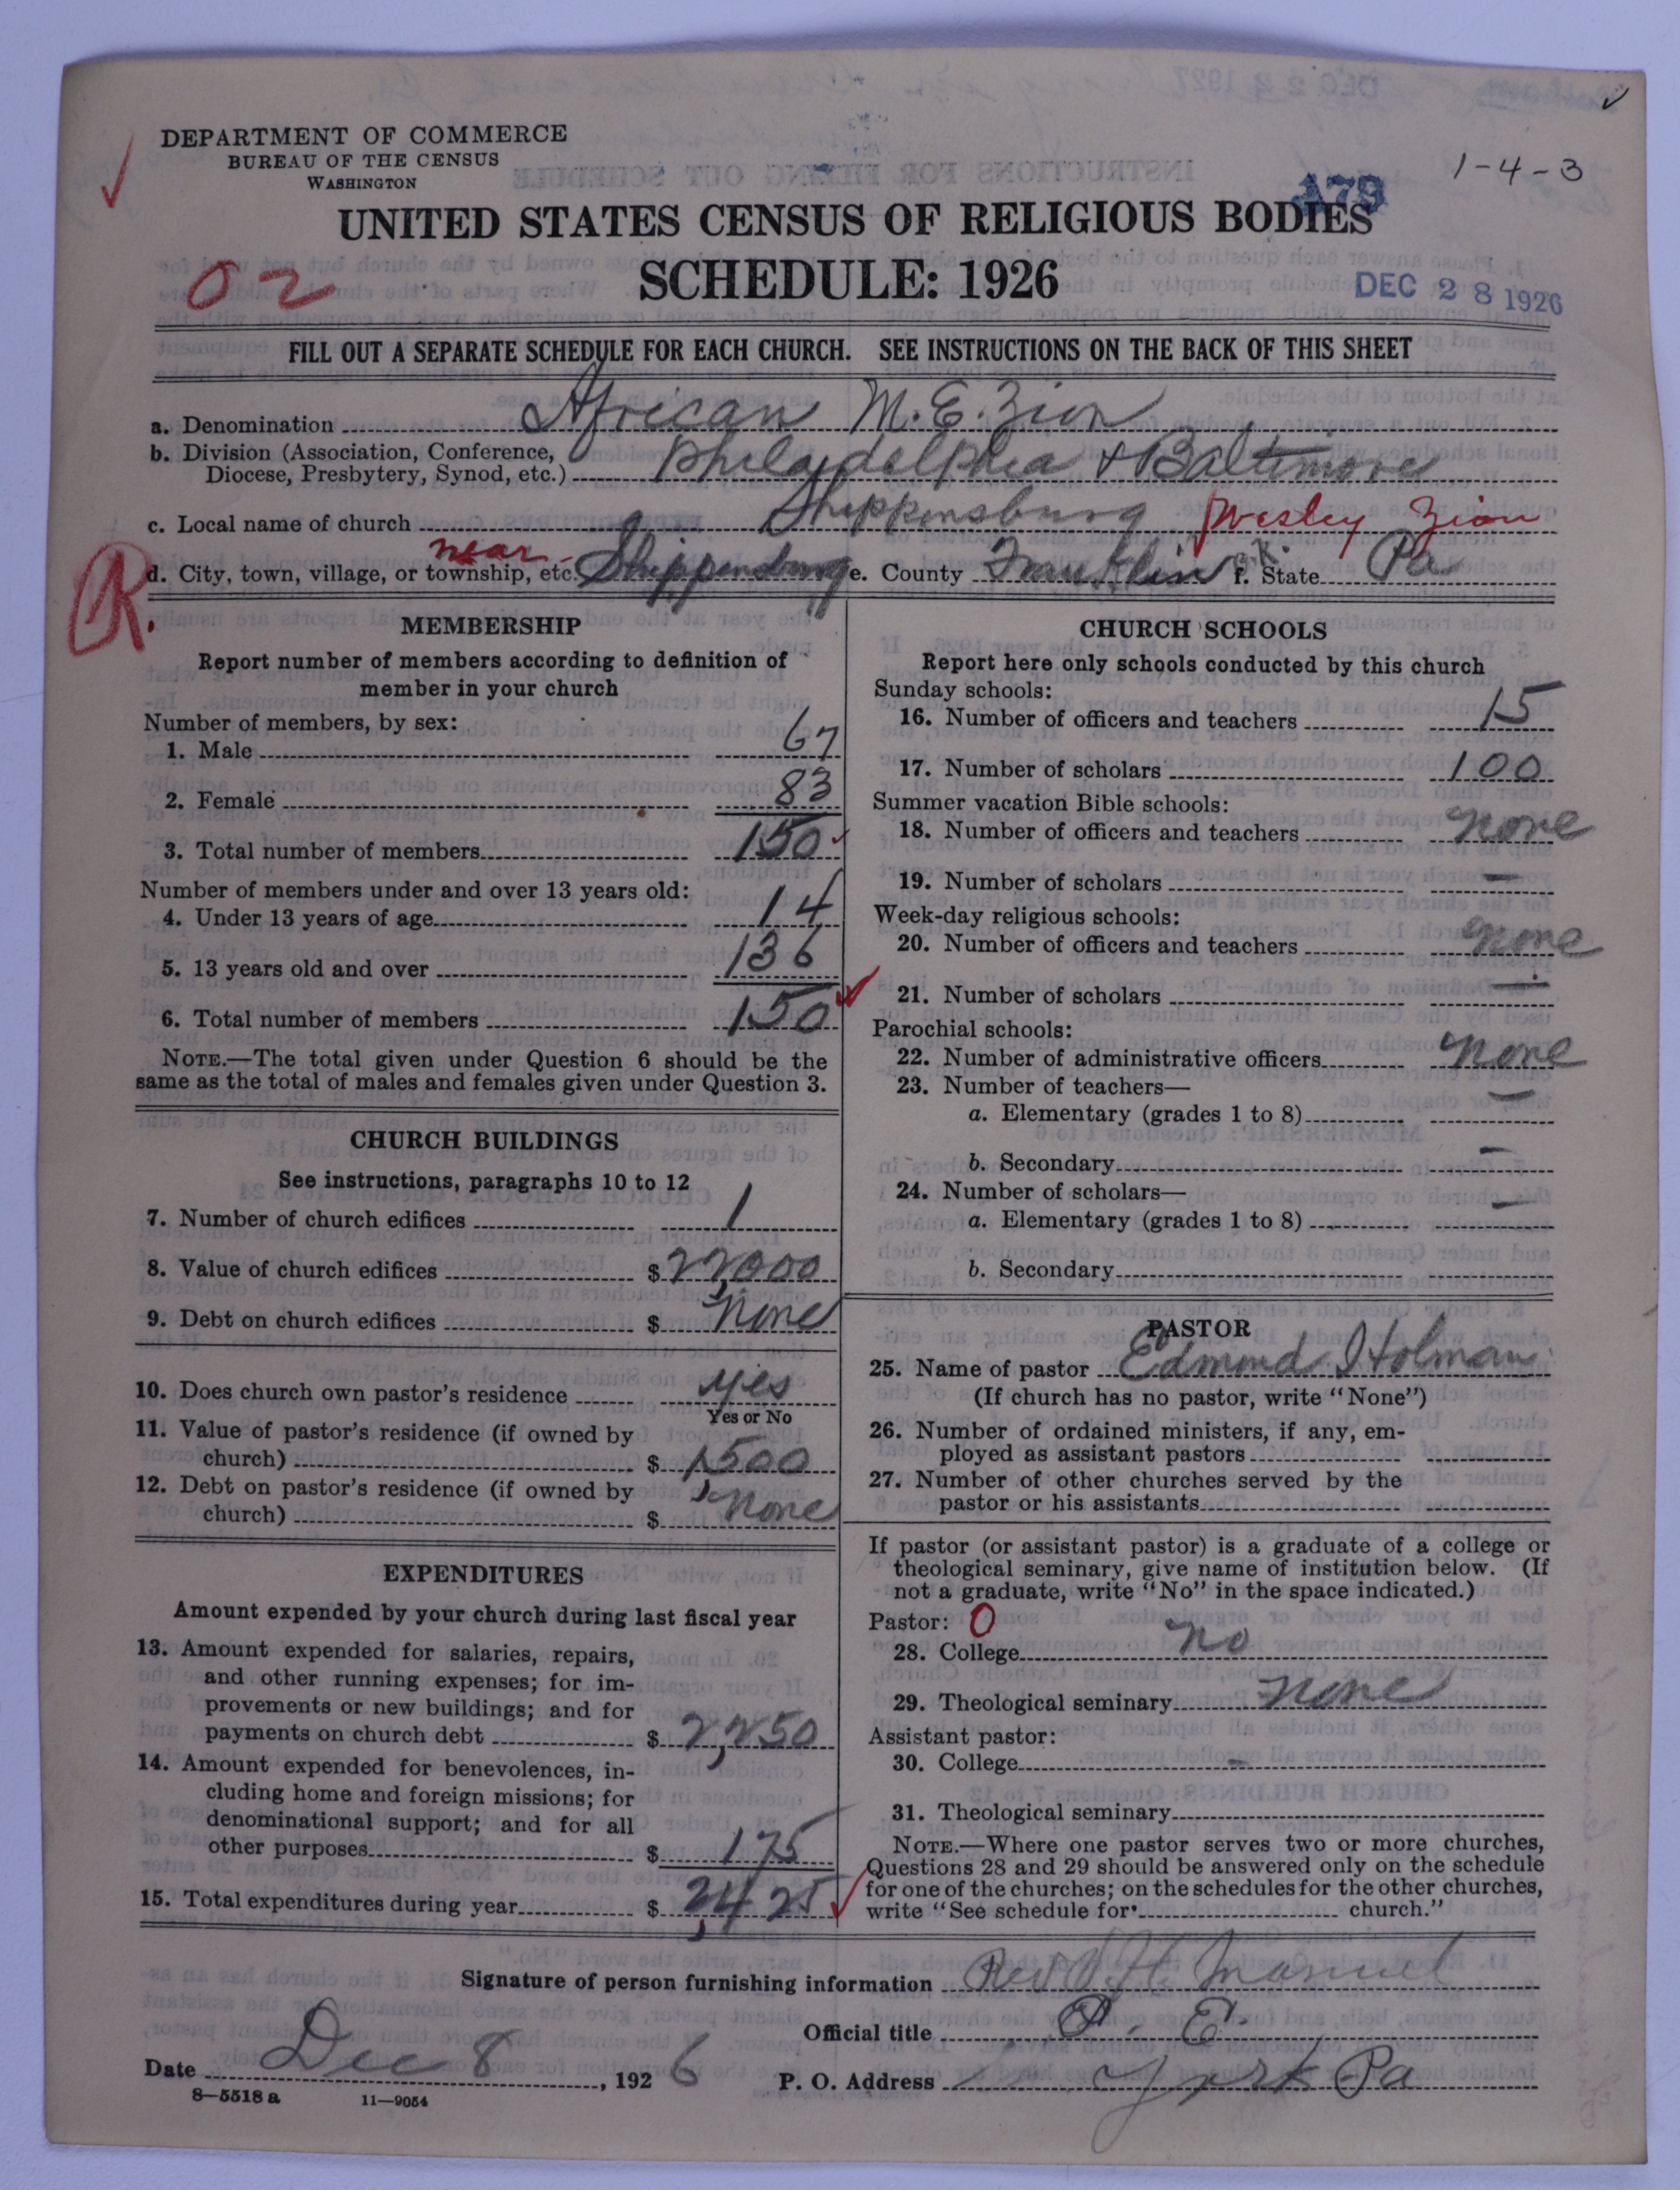 DEPARTMENT OF COMMERCE
BUREAU OF THE CENSUS
WASHINGTON
1-4-3
A79
UNITED STATES CENSUS OF RELIGIOUS BODIES
02
SCHEDULE: 1926
DEC 28 1926
FILL OUT A SEPARATE SCHEDULE FOR EACH CHURCH. SEE INSTRUCTIONS ON THE BACK OF THIS SHEET
a. Denomination African M.E. Zion
b. Division (Association, Conference,
Diocese, Presbytery, Synod, etc.) Philadelphia & Baltimore
c. Local name of church Shippensburg Wesley Zion
near
d. City, town, village, or township, etc. Shippensburg e. County Franklin ok. f. State Pa
R.
MEMBERSHIP
Report number of members according to definition of
member in your church
Number of members, by sex:
1. Male 67
2. Female 83
3. Total number of members 150
Number of members under and over 13 years old:
4. Under 13 years of age 14
5. 13 years old and over 136
6. Total number of members 150
NOTE.—The total given under Question 6 should be the
same as the total of males and females given under Question 3.
CHURCH BUILDINGS
See instructions, paragraphs 10 to 12
7. Number of church edifices 1
8. Value of church edifices $22,000
9. Debt on church edifices $ None
10. Does church own pastor's residence yes
Yes or No
11. Value of pastor's residence (if owned by
church) $ 1,500
12. Debt on pastor's residence (if owned by
church) $ None
EXPENDITURES
Amount expended by your church during last fiscal year
13. Amount expended for salaries, repairs,
and other running expenses; for im-
provements or new buildings; and for
payments on church debt $ 2,250
14. Amount expended for benevolences, in-
cluding home and foreign missions; for
denominational support; and for all
other purposes $ 175
15. Total expenditures during year $ 2,425
CHURCH SCHOOLS
Report here only schools conducted by this church
Sunday schools:
16. Number of officers and teachers 15
17. Number of scholars 100
Summer vacation Bible schools:
18. Number of officers and teachers none
19. Number of scholars —
Week-day religious schools:
20. Number of officers and teachers none
21. Number of scholars —
Parochial schools:
22. Number of administrative officers none
23. Number of teachers—
a. Elementary (grades 1 to 8) —
b. Secondary —
24. Number of scholars—
a. Elementary (grades 1 to 8) —
b. Secondary
PASTOR
25. Name of pastor Edmond I Holman
(If church has no pastor, write "None")
26. Number of ordained ministers, if any, em-
ployed as assistant pastors
27. Number of other churches served by the
pastor or his assistants
If pastor (or assistant pastor) is a graduate of a college or
theological seminary, give name of institution below. (If
not a graduate, write "No" in the space indicated.)
Pastor: 0
28. College no
29. Theological seminary none
Assistant pastor:
30. College —
31. Theological seminary
NOTE.—Where one pastor serves two or more churches,
Questions 28 and 29 should be answered only on the schedule
for one of the churches; on the schedules for the other churches,
write "See schedule for church."
Signature of person furnishing information Rev H. Manuel
Official title P. E.
Date Dec 8, 1926 P. O. Address York Pa
8—5518 a 11—9054